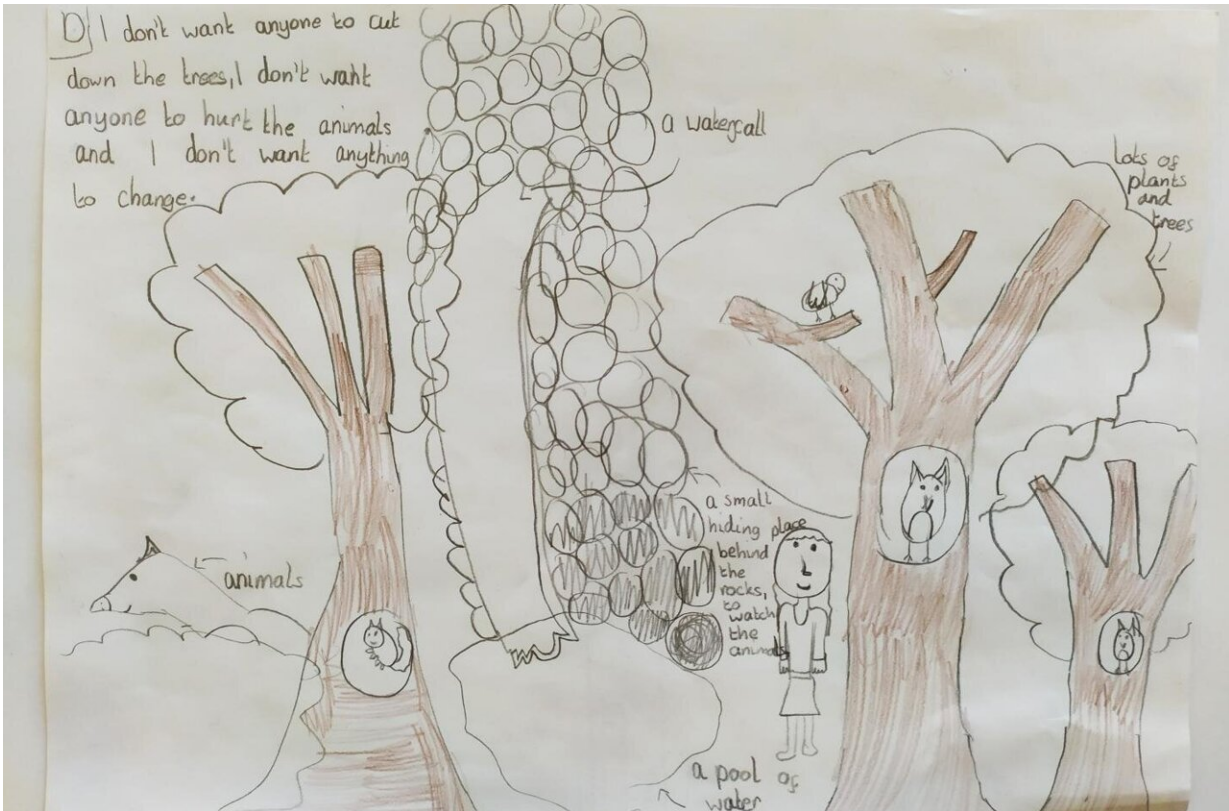 D) I don't want anyone to cut
down the trees, I don't want
anyone to hurt the animals
and I don't want anything
to change.
a waterfall
lots of
plants
and
trees
a small
hiding place
behind
the
rocks,
to
watch
the
animals
animals
a pool of
water